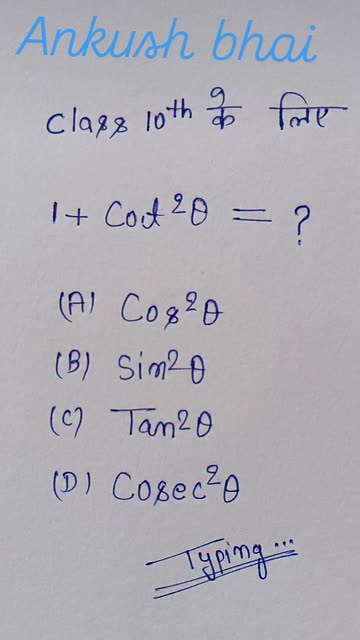 Ankush bhai
Class 10th के लिए
1 + Cot²θ = ?
(A) Cos²θ
(B) Sin²θ
(C) Tan²θ
(D) Cosec²θ
Typing...